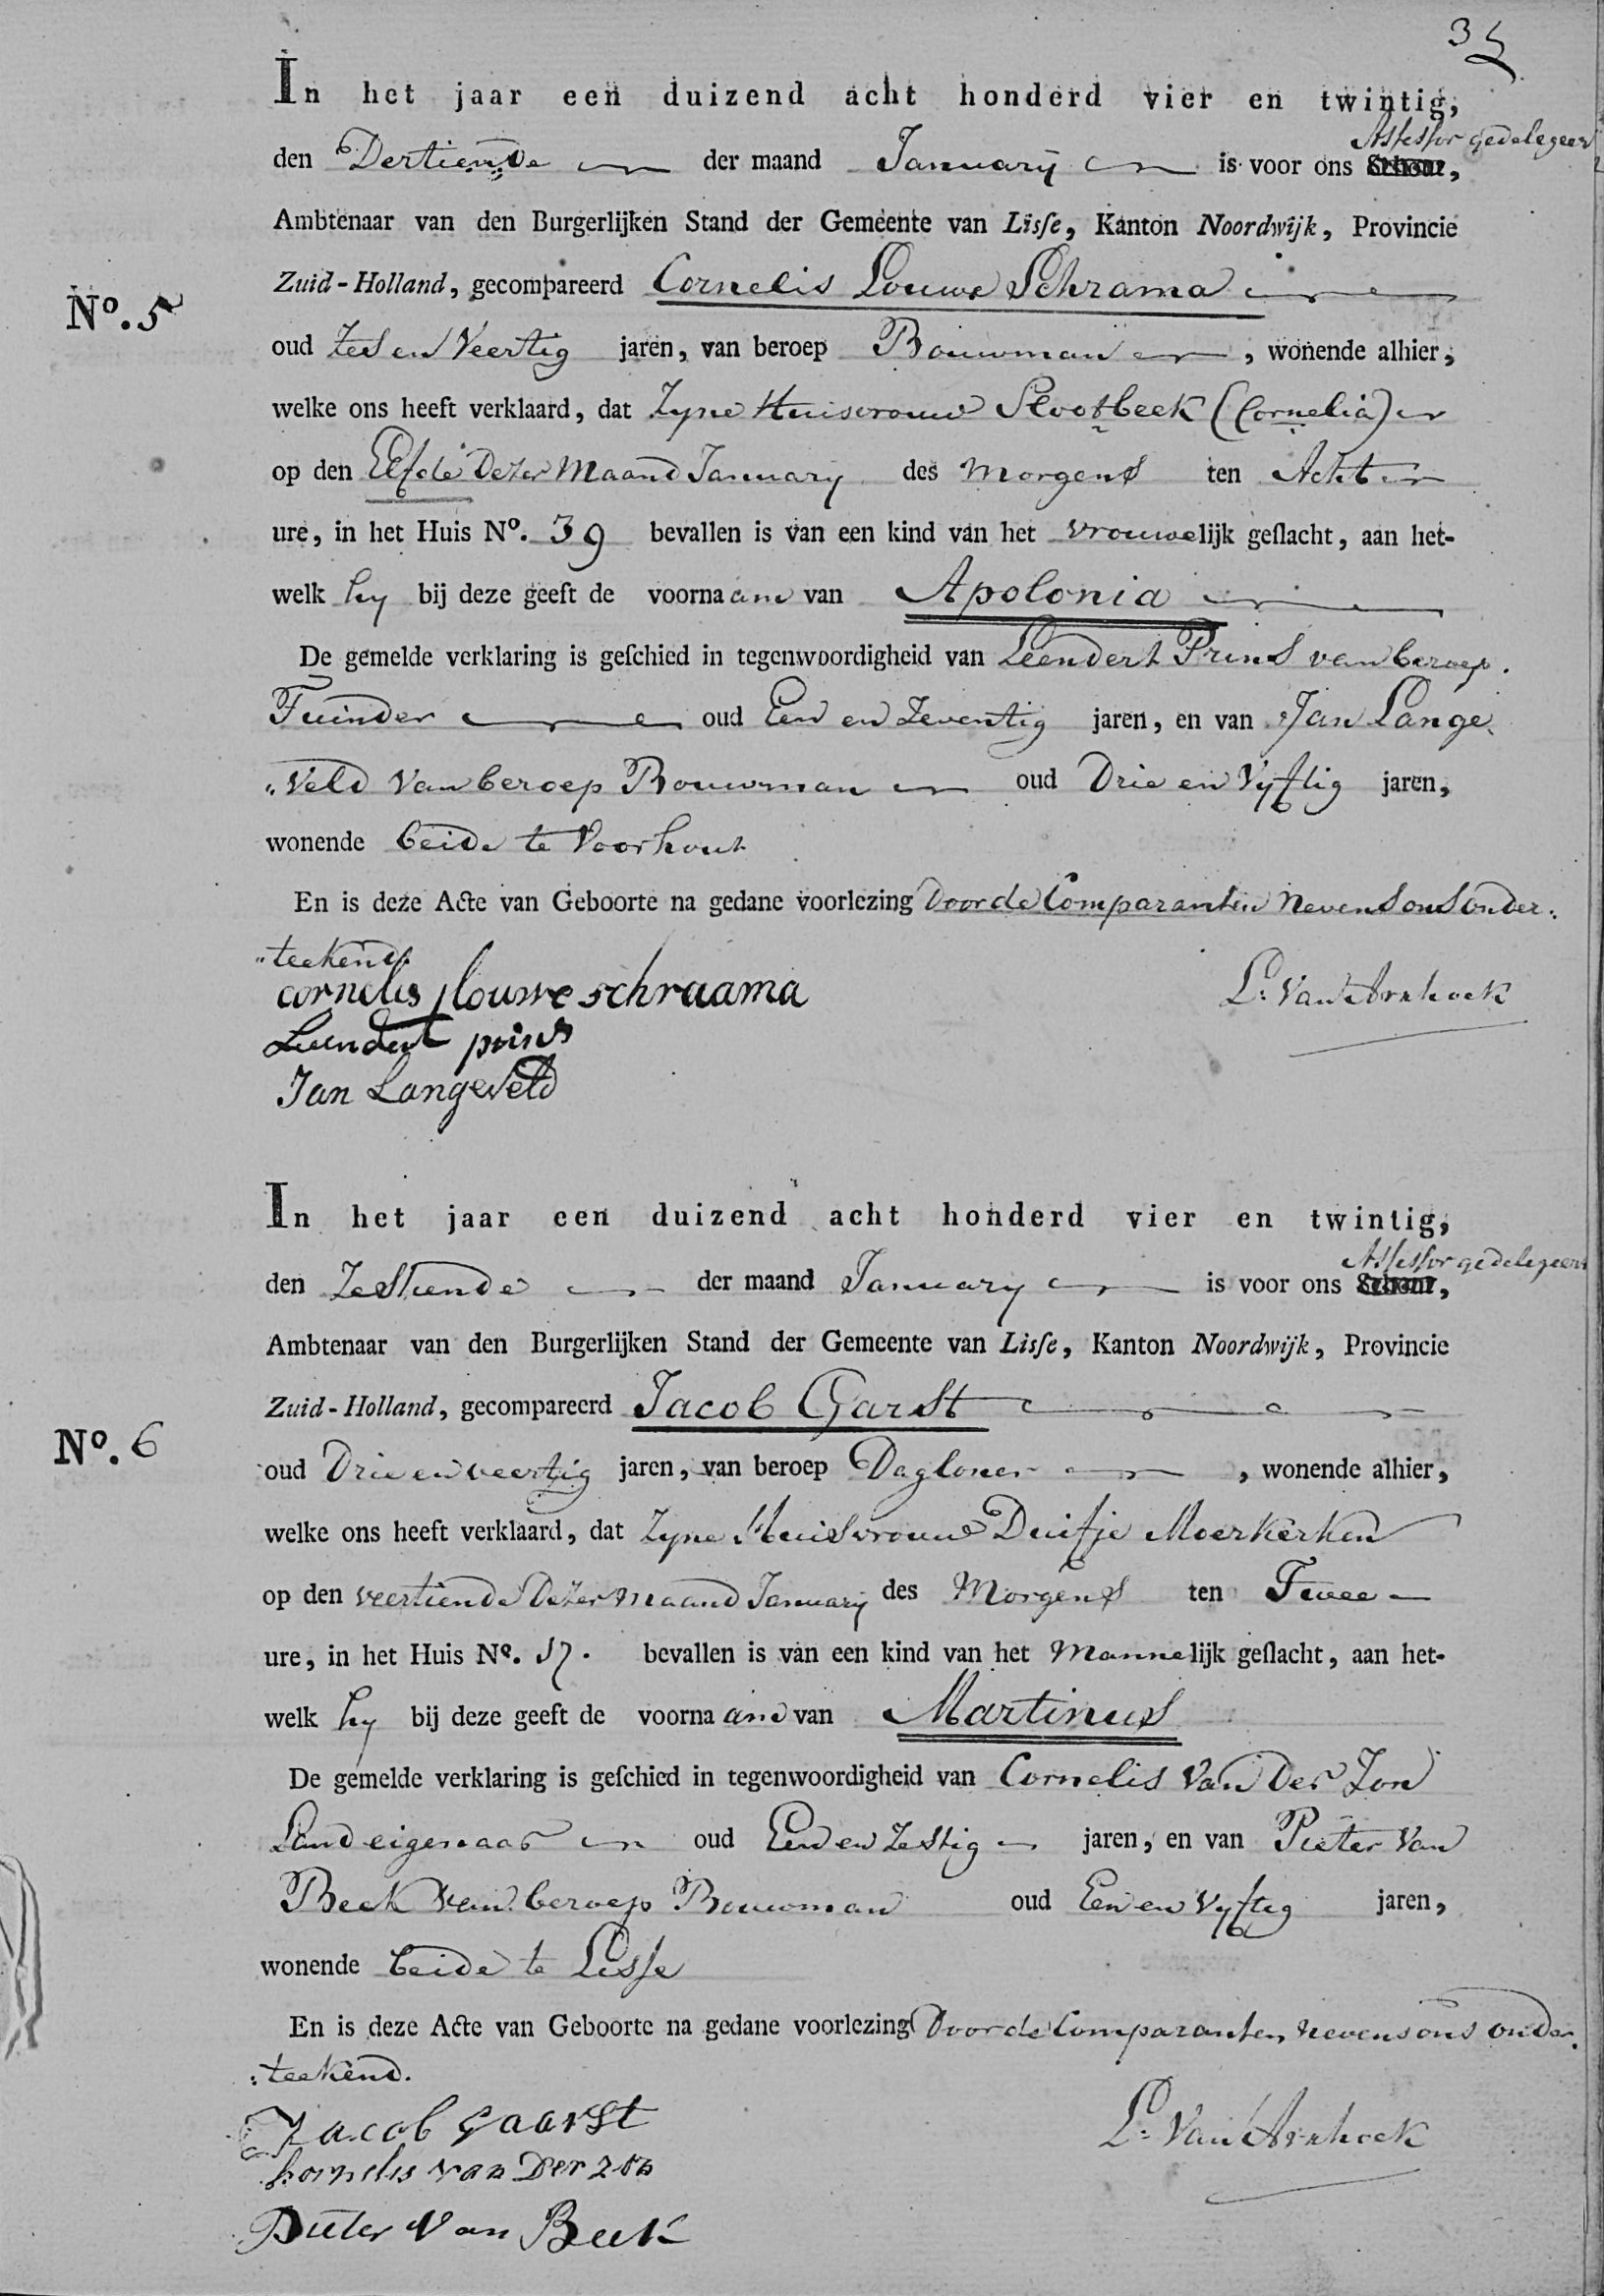 In het jaar een duizend acht honderd vier en twintig,
Assessor gedelegeerd
den Dertiende der maand January is voor ons Schout,
Ambtenaar van den Burgerlijken Stand der Gemeente van Lisſe, Kanton Noordwijk, Provincie
Zuid-Holland, gecompareerd Cornelis Louwe Schrama
No. 5
oud Zes en Veertig jaren, van beroep Bouwman, wonende alhier,
welke ons heeft verklaard, dat Zyne Huisvrouw Slootbeek (Cornelia)
op den Elfde Dezer Maand January des Morgens ten Acht
ure, in het Huis No. 39 bevallen is van een kind van het vrouwelijk geſlacht, aan het-
welk hy bij deze geeft de voornaam van Apolonia
De gemelde verklaring is geſchied in tegenwoordigheid van Leendert Prins van beroep
Tuinder oud Een en Zeventig jaren, en van Jan Lange
„Veld van beroep Bouwman oud Drie en Vyftig jaren,
wonende beide te Voorhout
En is deze Acte van Geboorte na gedane voorlezing Door de Comparanten Nevens ons onder:
„teekend
cornelis louwe schraama
L: Van Arnhoek
Leendert prins
Jan Langeveld
In het jaar een duizend acht honderd vier en twintig,
Assessor gedelegeerd
den Zestiende der maand January is voor ons Schout,
Ambtenaar van den Burgerlijken Stand der Gemeente van Lisſe, Kanton Noordwijk, Provincie
Zuid-Holland, gecompareerd Jacob Garst
No. 6
oud Drie en veertig jaren, van beroep Dagloner, wonende alhier,
welke ons heeft verklaard, dat Zyne Huisvrouw Duifje Moerkerken
op den veertiende Dezer maand January des Morgens ten Twee
ure, in het Huis No. 17. bevallen is van een kind van het Mannelijk geſlacht, aan het-
welk hy bij deze geeft de voornaam van Martinus
De gemelde verklaring is geſchied in tegenwoordigheid van Cornelis Van Der Zon
Landeigenaar oud Een en Zestig jaren, en van Pieter Van
Beek van beroep Bouwman oud Een en vyftig jaren,
wonende beide te Lisse
En is deze Acte van Geboorte na gedane voorlezing Door de Comparanten nevens ons onder
:teekend.
Jacob gaarst
L: Van Arnhoek
kornelis van Der zon
Pieter Van Beek